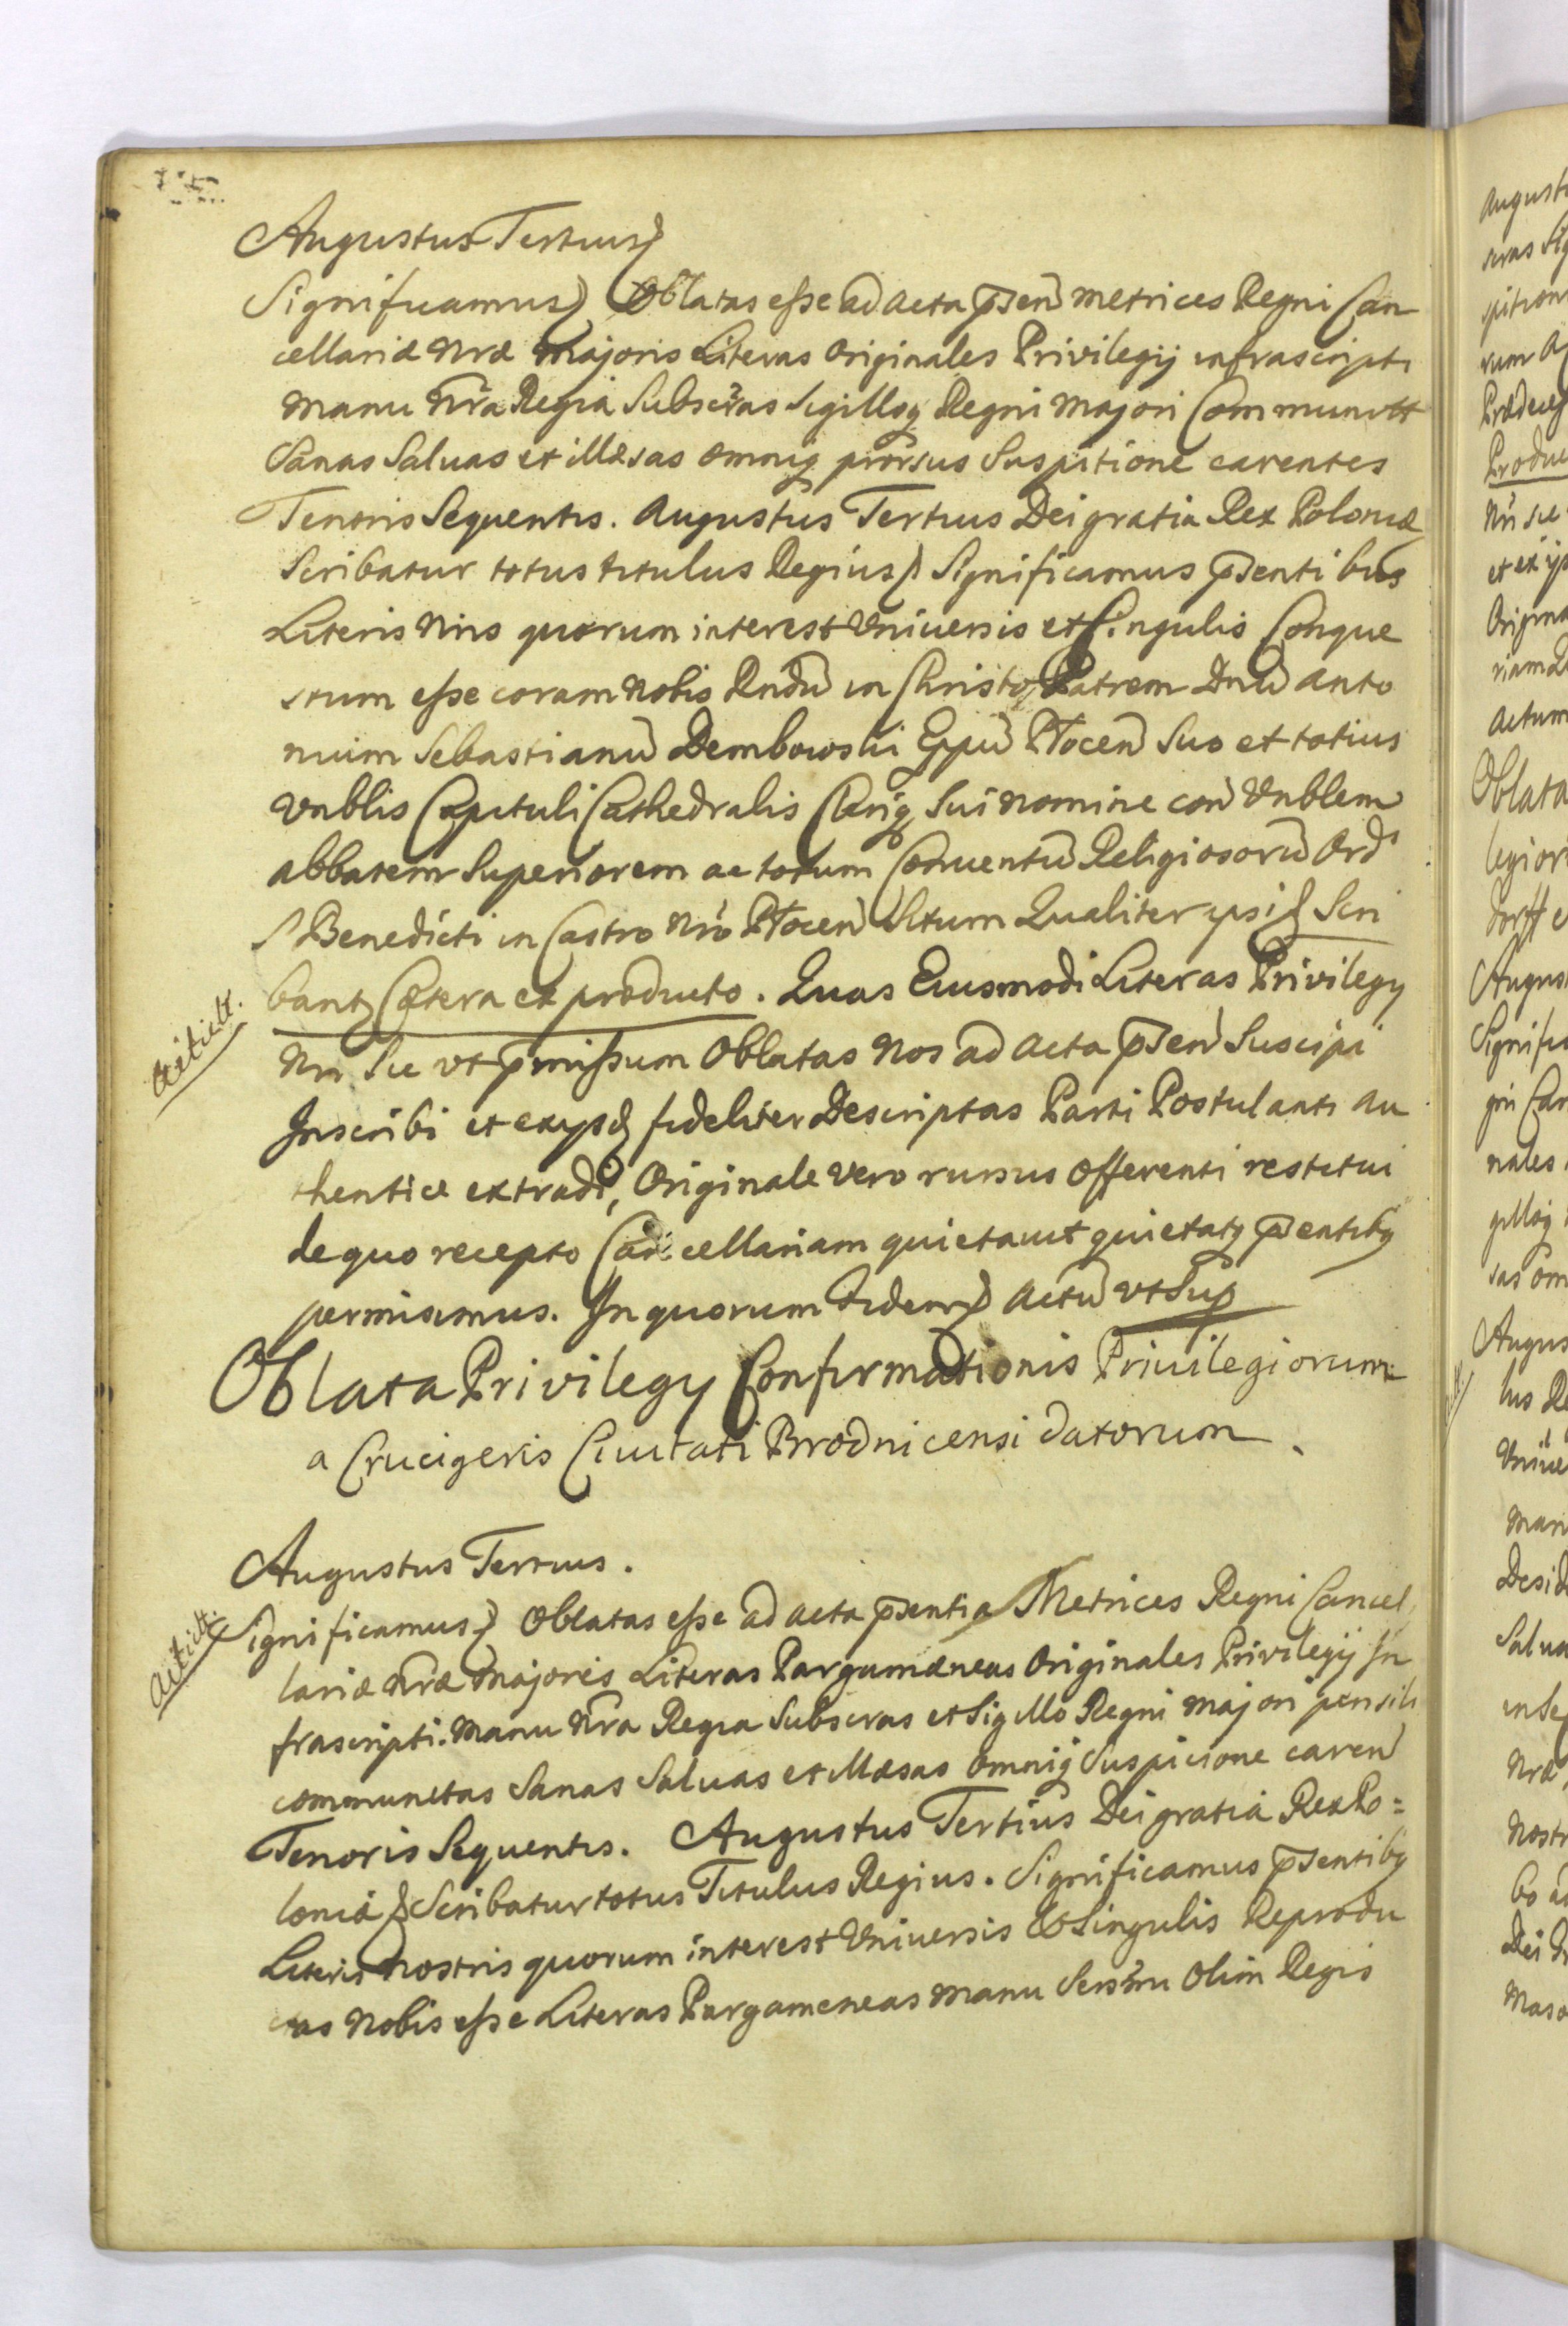 Augustus Tertius
Significamus Oblatas esse ad Acta pñsen Metrices Regni Can
cellariæ Nræ Majoris Literas Originales Privilegij infrascripti
Manu Nra Regia Subscras Sigilloq Regni Majori Communitt
Sanas Saluas et illæsas omniq prorsus Suspitione carentes
Tenoris Sequentis. Augustus Tertius Dei gratia Rex Poloniæ
Scribatur totus titulus Regius Significamus pñsentibus
Literis Nris quorum interest Vniuersis et Singulis Conque
stum esse coram Nobis Rndũ in Christo Patrem Dnũ Anto
nium Sebastianũ Dembowski Eppũ Płocen Suo et totius
Vnblis Capituli Cathedralis Cleriq Sui nomine con Vnblem
Abbatem Superiorem ac totum Conuentũ Religiosorũ Ord
S Benedicti in Castro Nro Płocen Situm Qualiter ipsi Scri
bantʒ Cætera ex producto. Quas Eiusmodi Literas Privilegy
Nri Sic vt pmissum Oblatas Nos ad Acta pñsen Suscipi
Inscribi et exijsd fideliter Descriptas Parti Postulanti Au
thentice extradi, Originale Vero rursus Offerenti restitui
de quo recepto Cancellariam quietauit quietatq pñsentibʒ
permisimus. In quorum Fidem Actũ vt Sup
Oblata Privilegy Confirmationis Priuilegiorum
a Crucigeris Ciuitati Brodnicensi datorum
Augustus Tertius.
Significamus Oblatas esse ad Acta pñsentia Metrices Regni Cancel
lariæ Nræ Majoris Literas Pargamæneas Originales Privilegij In
frascripti. Manu Nra Regia Subscras et Sigillo Regni Majori pensili
communitas Sanas Saluas et illæsas omniq Suspicione caren
Tenoris Sequentis. Augustus Tertius Dei gratia Rex Po=
loniæ Scribatur totus Titulus Regius. Significamus pñsentibʒ
Literis Nostris quorum interest Vniuersis & Singulis Reprodu
ctas Nobis esse Literas Pargameneas manu Sersmi Olim Regis